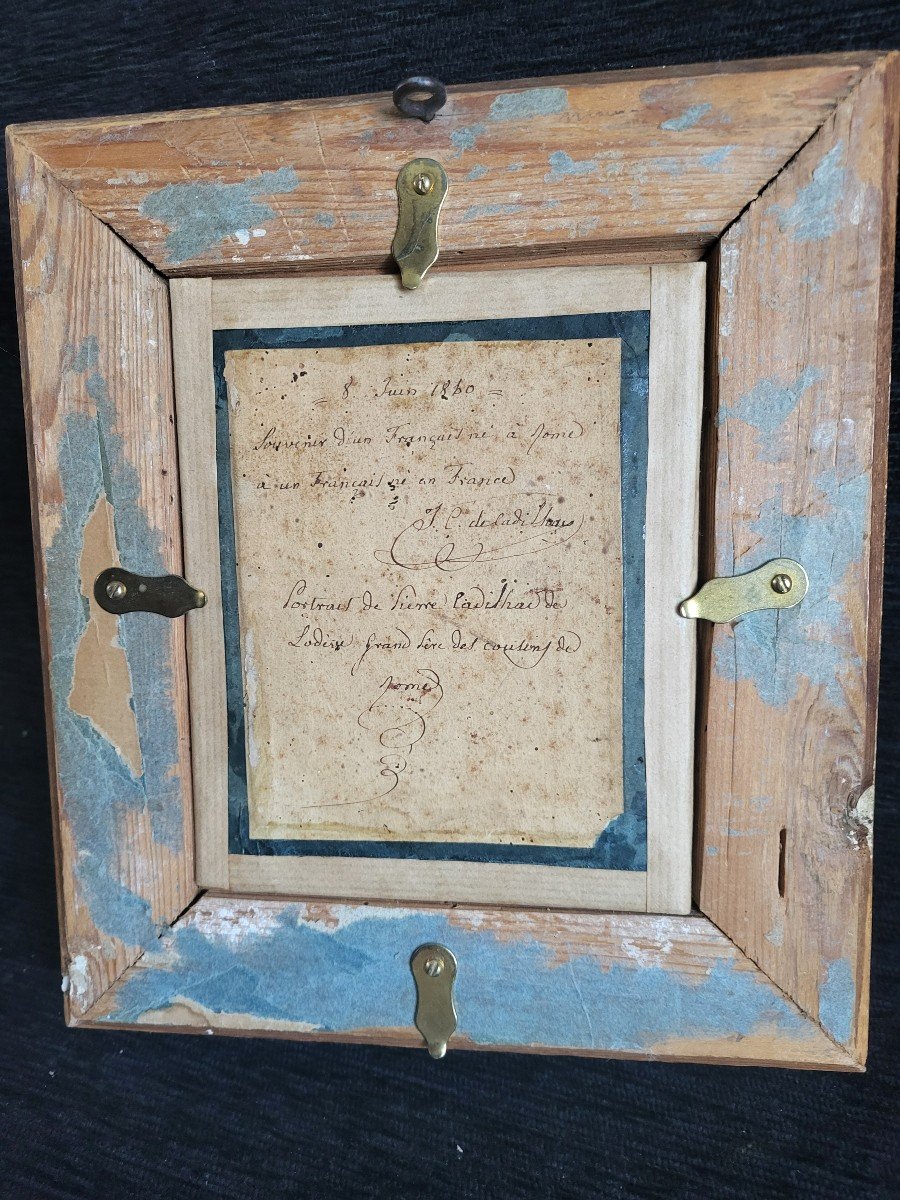 = 8 Juin 1860 =
Souvenir d'un Français né à Rome
à un Français né en France
J. C. de Cadilhac
Portrait de Pierre Cadilhac de
Lodève Grand Père des cousins de
Rome